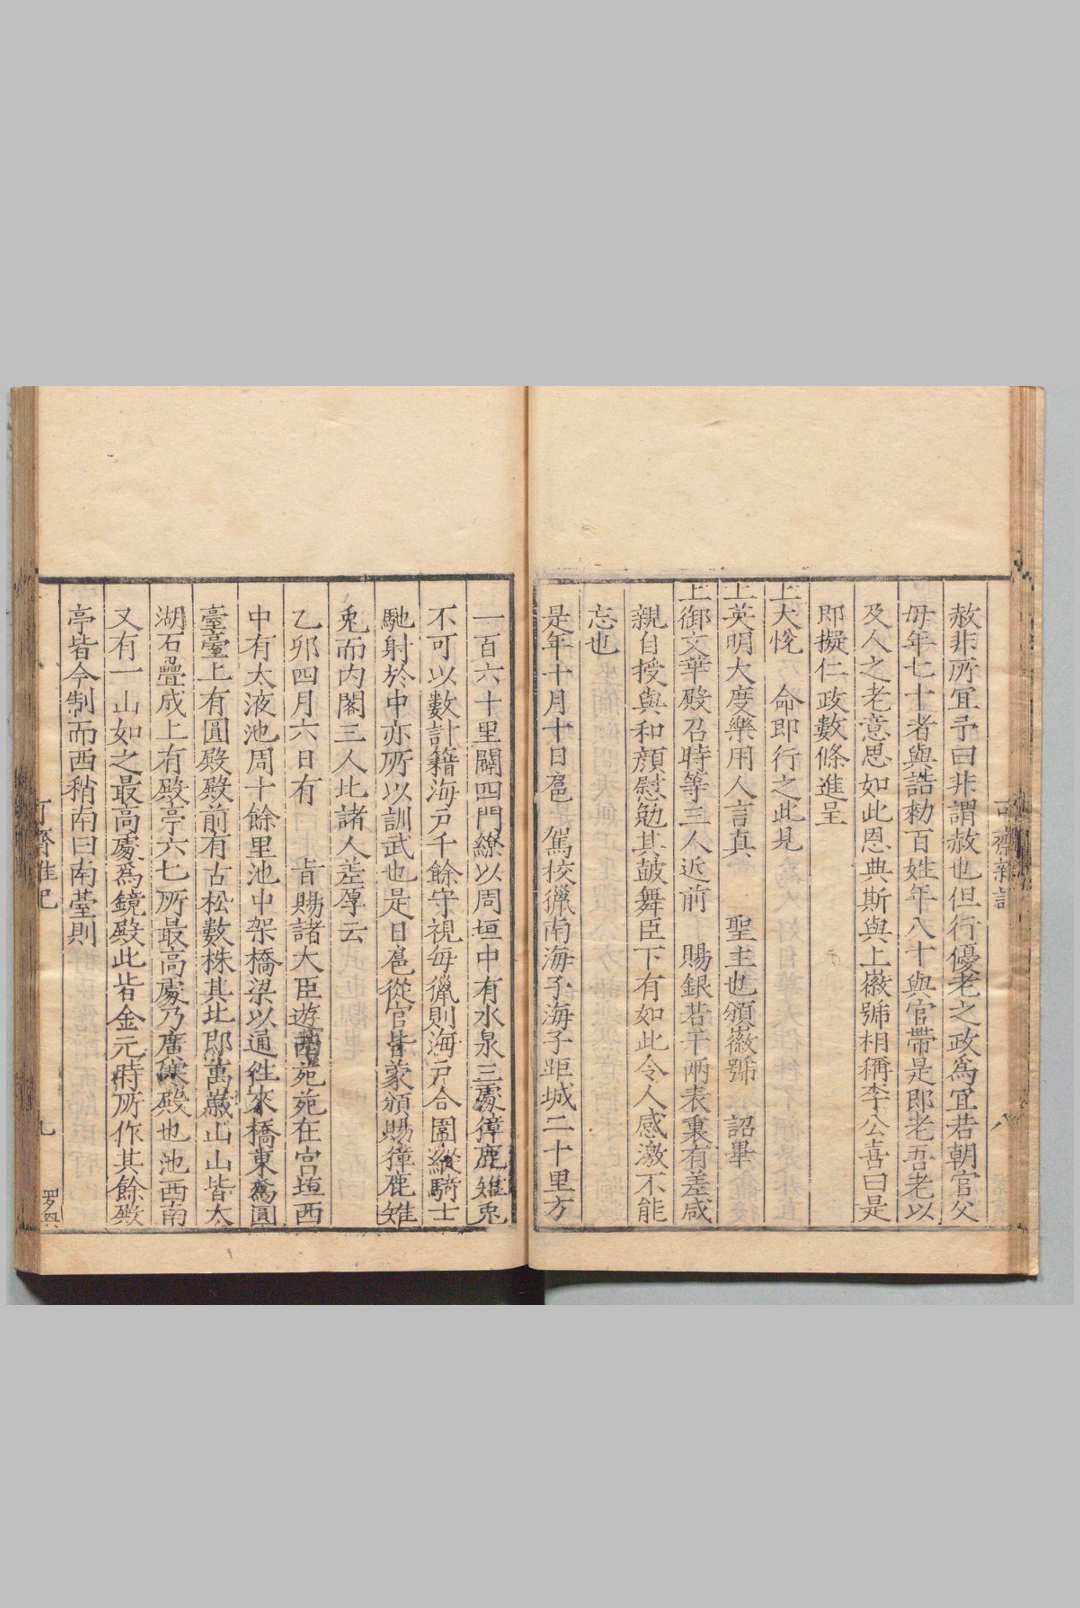 赦非所宜予曰非謂赦也但行優老之政爲宜若朝官父
母年七十者與誥勑百姓年八十與官帶是即老吾老以
及人之老意思如此恩典斯與上徽號相稱李公喜曰是
即擬仁政數條進呈
上大悅 命即行之此見
上英明大度樂用人言真 聖主也頒徽號 詔畢
上御文華殿召時等三人近前 賜銀若干兩表裏有差咸
親自授與和顏慰勉其鼓舞臣下有如此令人感激不能
忘也
是年十月十日扈 駕校獵南海子海子距城二十里方
可齋雜記 八
一百六十里闢四門繚以周垣中有水泉三處獐鹿雉兎
不可以數計籍海戶千餘守視每獵則海戶合圍縱騎士
馳射於中亦所以訓武也是日扈從官皆蒙頒賜獐鹿雉
兎而内閣三人比諸人差厚云
乙卯四月六日有 旨賜諸大臣遊西苑苑在宫垣西
中有太液池周十餘里池中架橋梁以通徃來橋東爲圓
臺臺上有圓殿殿前有古松數株其北即萬歲山山皆太
湖石疊成上有殿亭六七所最高處乃廣寒殿也池西南
又有一山如之最高處爲鏡殿此皆金元時所作其餘殿
亭皆今制而西稍南曰南臺則
可齋雜記 九